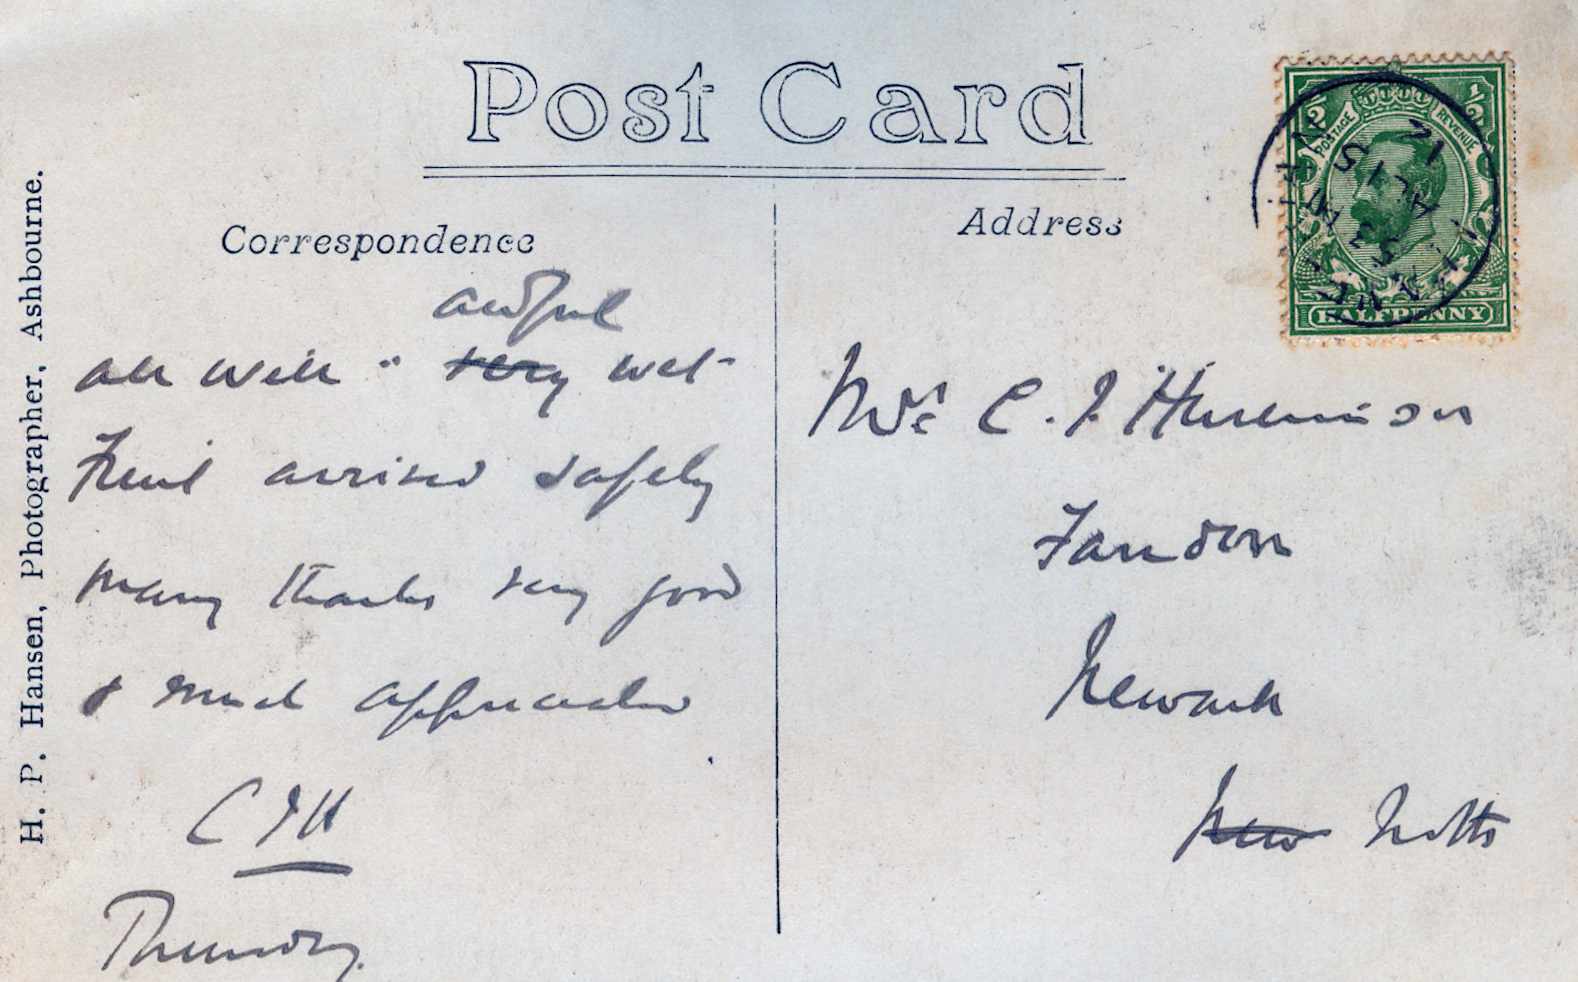 Post Card
Correspondence
Address
H. P. Hansen, Photographer, Ashbourne.
POSTAGE REVENUE
1/2 1/2
HALFPENNY
awful
all well - very wet
Fruit arrived safely
many thanks very good
& much appreciated
C I H
Thursday
Mrs C. I. Hutchinson
Farndon
Newark
New Notts